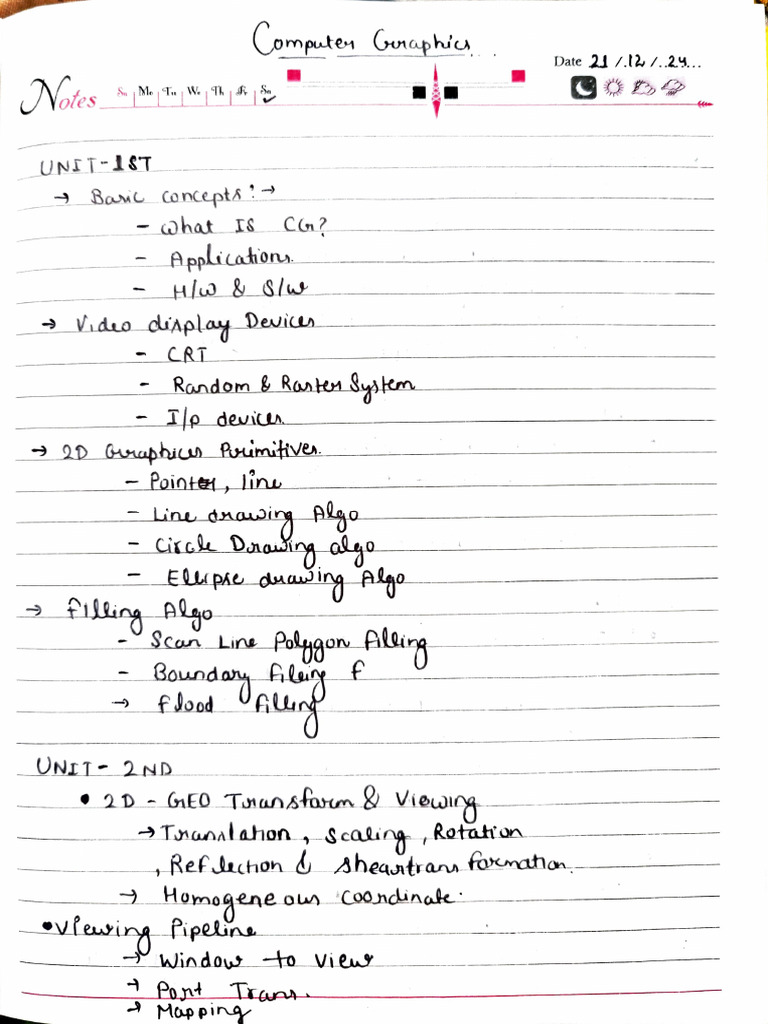 Computer Graphics
Date 21/.12/..24...
Notes Su Mo Tu We Th Fr Sa
UNIT-1ST
→ Basic concepts:→
- What IS CG?
- Applications.
- H/W & S/W
→ Video display Devices
- CRT
- Random & Raster System
- I/p devices.
→ 2D Graphices Primitives.
- Pointer, line
- Line drawing Algo
- Circle Drawing algo
- Ellipse drawing Algo
→ Filling Algo
- Scan Line Polygon filling
- Boundary filling f
→ flood filling
UNIT- 2ND
• 2D - GEO Transform & Viewing
→ Translation, Scaling, Rotation
, Reflection & Sheartrans formation.
→ Homogeneous coordinate.
• Viewing Pipeline
→ Window to view
→ Port Trans.
→ Mapping